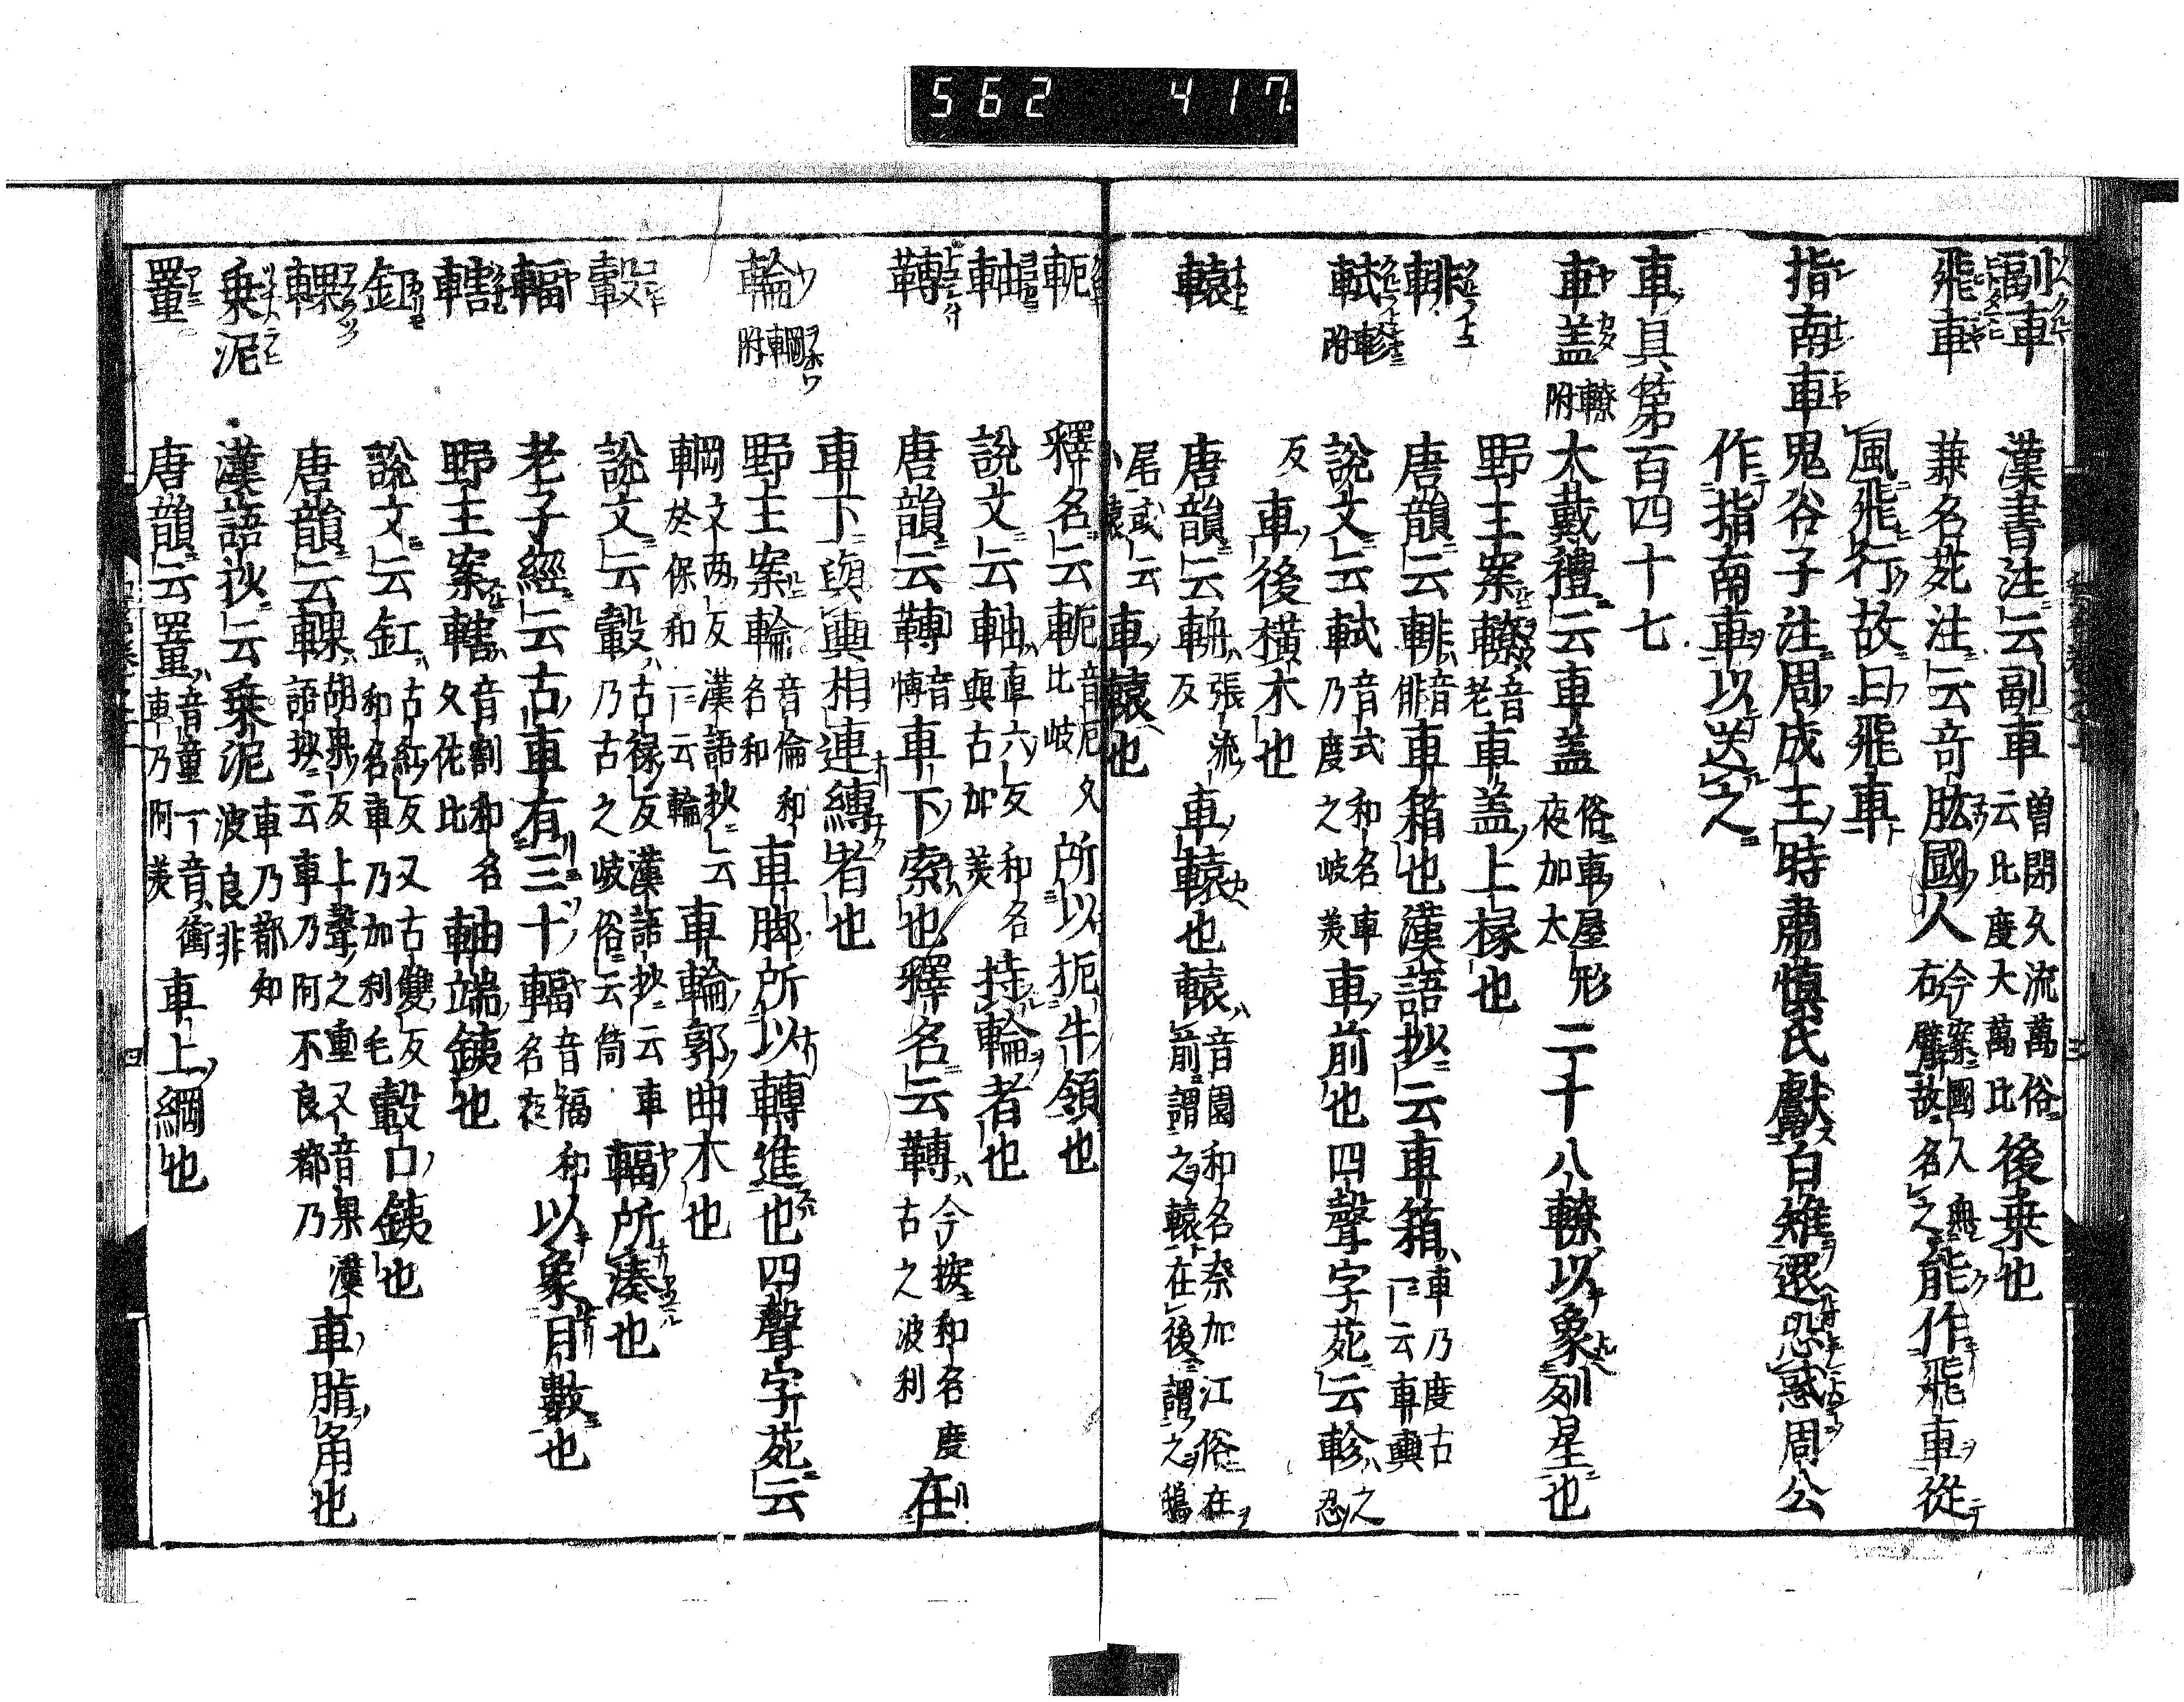 562 417
副車 漢書注云副車 曽閇久流萬俗云比度大萬比 後乗也
飛車 兼名苑注云竒肱國人 今案國人無右臂故名之 能作飛車從
風飛行故曰飛車
指南車 鬼谷子注周成王時肅慎氏獻白雉還恐惑周公
作指南車以送之
車具第百四十七
車盖 轑附 大戴禮云車盖 俗車屋形夜加太 二十八轑以象列星也
野王案轑 音老 車盖上椽也
輫 唐韻云輫 音俳 車箱也漢語抄云車箱 車乃度古一云車輿
軾 軫附 說文云軾 音式和名車乃度之岐美 車前也四聲字苑云軫 之忍
反 車後橫木也
轅 唐韻云輈 張流反 車轅也轅 音園和名奈加江俗在前謂之轅在後謂之鴟
尾或云小轅 車轅也
軛 釋名云軛 音厄久比岐 所以扼牛領也
軸 說文云軸 直六反和名與古加美 持輪者也
轉 唐韻云轉 音博 車下索也釋名云轉 今按和名度古之波利 在
車下與輿相連縛者也
輪 輞附 野王案輪 音倫和名和 車脚所以轉進也四聲字苑云
輞 文兩反漢語抄云於保和一云輪 車輪郭曲木也
轂 說文云轂 古祿反漢語抄云車乃古之岐俗云筒 輻所湊也
輻 老子經云古車有三十輻 音福和名夜 以象月數也
轄 野王案轄 音割和名久佐比 軸端鐵也
釭 說文云釭 古紅反又古雙反和名車乃加利毛 轂口鐵也
輠 唐韻云輠 胡果反上聲之重又音果漢語抄云車乃阿不良都乃 車脂角也
乗泥 漢語抄云乗泥 車乃都知波良非
罿 唐韻云罿 音童一音衝車乃阿美 車上網也